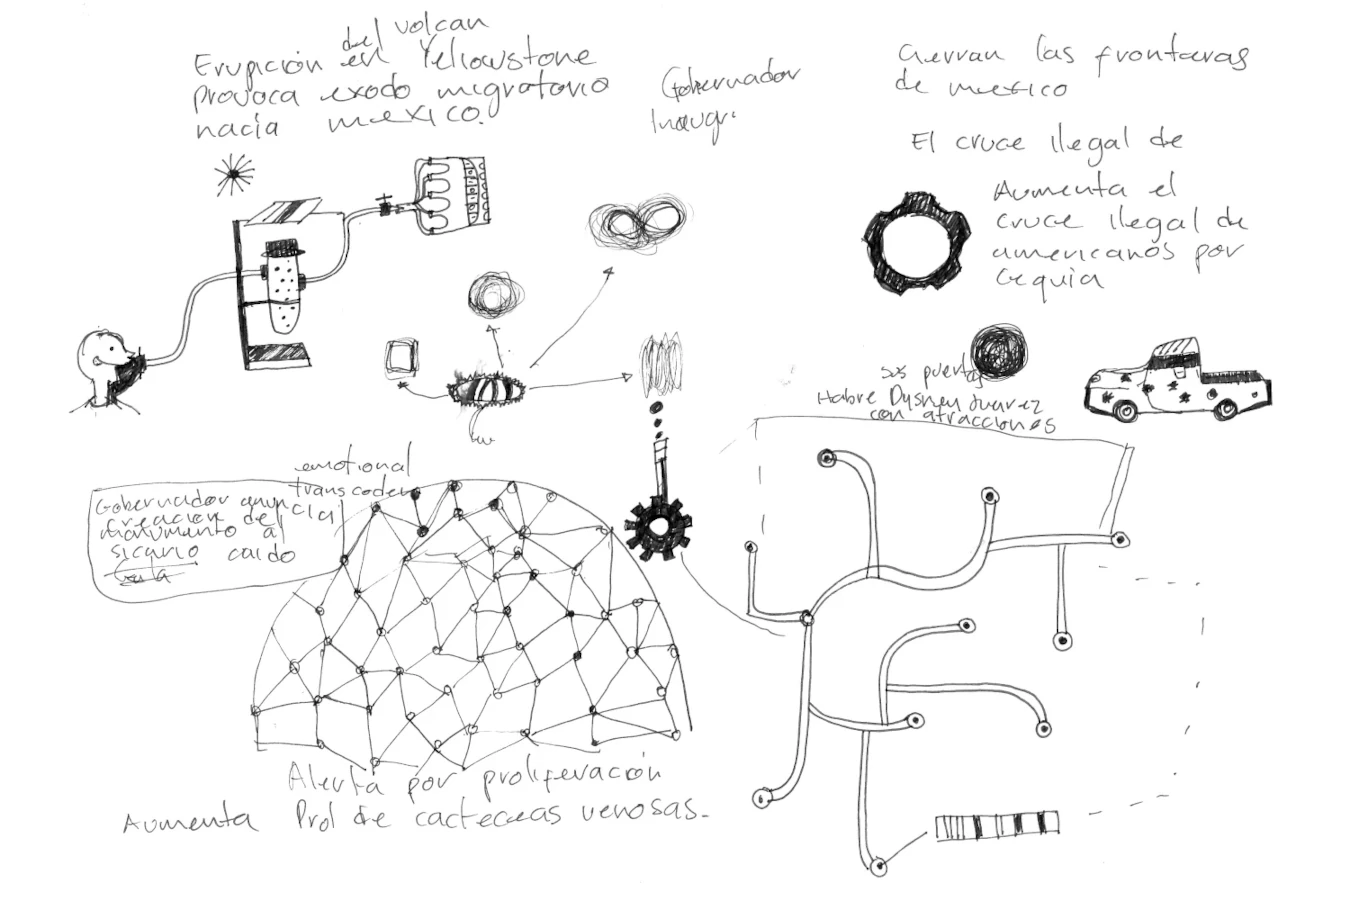 Erupción del volcan
en Yellowstone
provoca exodo migratorio
hacia mexico.
Gobernador
Inaugr.
Cierran las fronteras
de mexico
El cruce ilegal de
Aumenta el
cruce ilegal de
americanos por
sus puertas
Habre Dysney Juarez
con atracciones
emotional
transcoder
Gobernador anuncia
creacion del
monumento al
sicario caido
Alerta por proliferación
Aumenta Prol de cacteceas venosas.